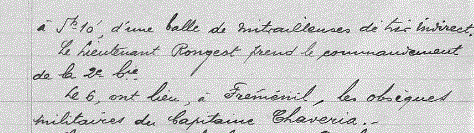 à 5h10, d'une balle de mitrailleuses de tir indirect.
Le Lieutenant Rongest prend le commandement
de la 2e Cie
Le 6, ont lieu, à Fréménil, les obsèques
militaires du Capitaine Chaveria.-